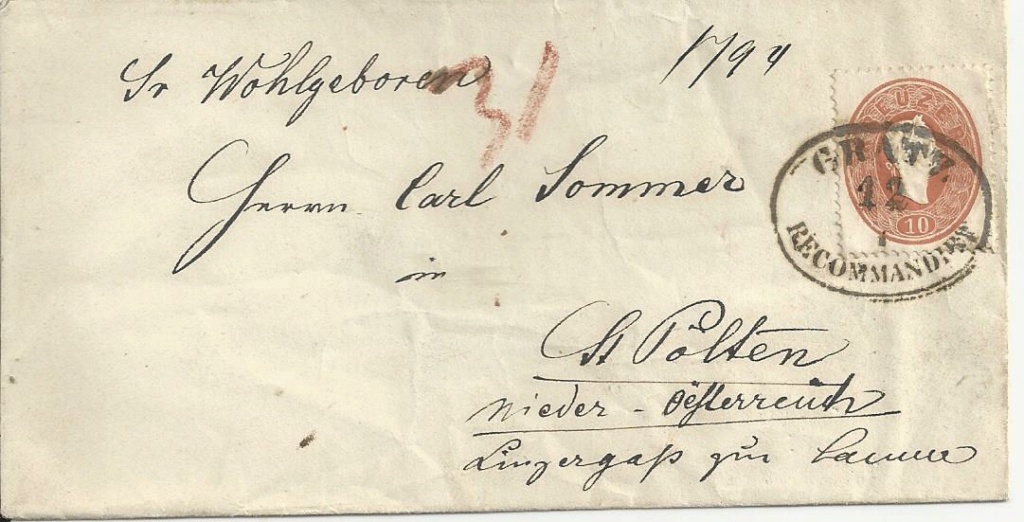 1794
Sr Wohlgeboren
31
Herrn Carl Sommer
in
St Pölten
Nieder-Oesterreich
Linzergaß zur
KREUZER
10
GRATZ
12
1
RECOMMANDIRT